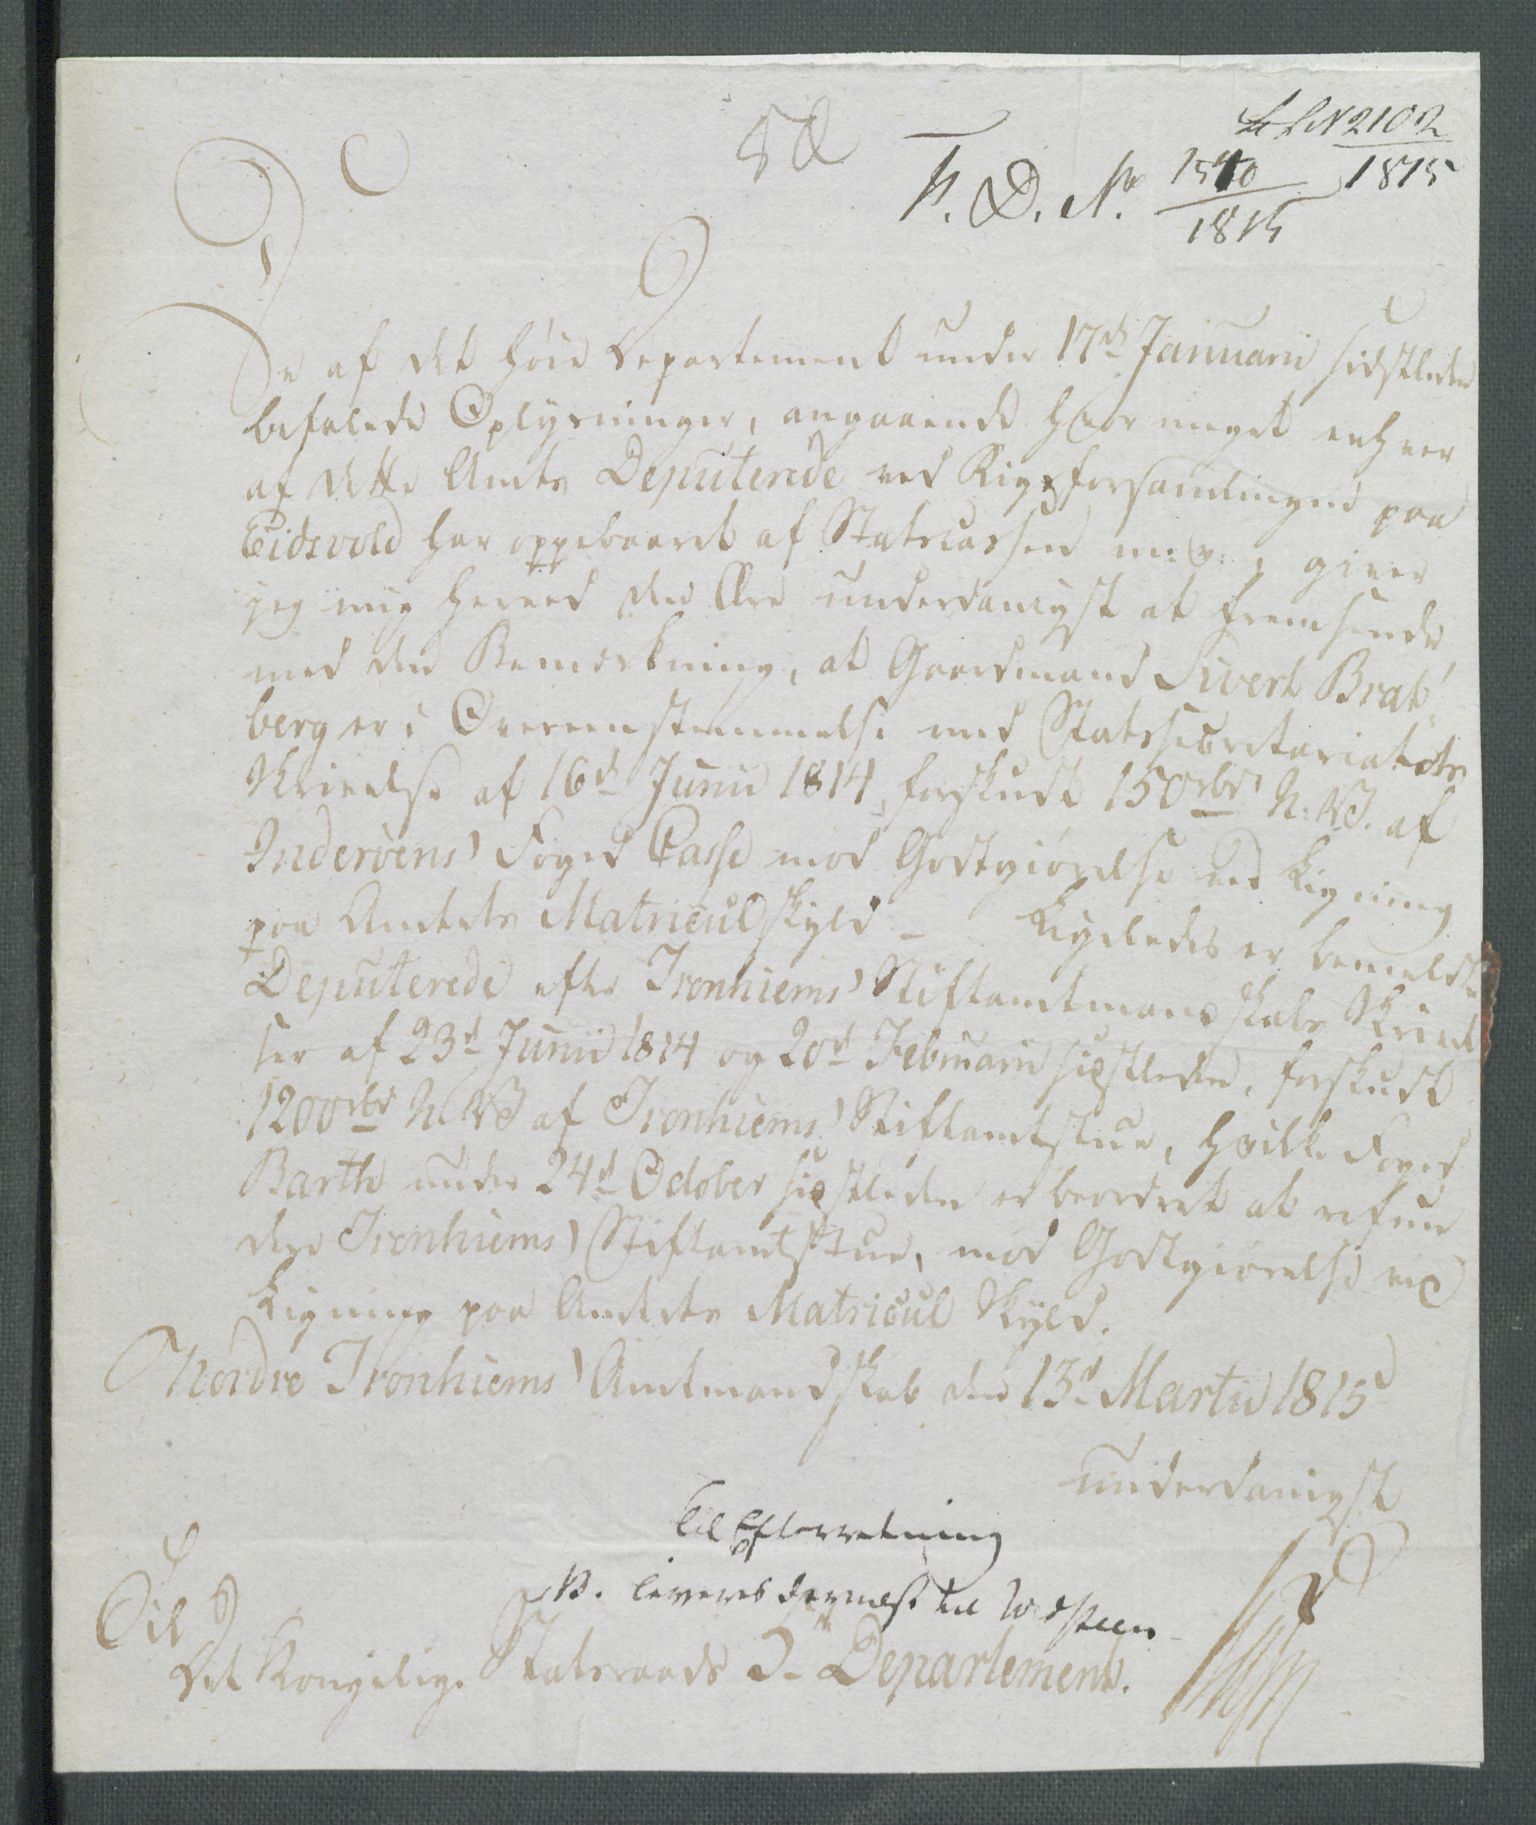 2102
1815
F. D. No. 1540
1815
De af det høie Departement under 17de Januarii sidstleden
befalede Oplysninger, angaaende hvor meget enhver
af dette Amts Deputerede ved Rigsforsamlingen paa
Eidsvold har oppebaaret af Statscassen m: v:, giver
jeg mig herved den Ære underdanigst at fremsende
med den Bemærkning, at Gaardmand Sivert Brat-
berg er i Overeensstemmelse med Statssecretariatets
Skrivelse af 16de Junii 1814, forskudt 150 rbd N. V. af
Inderøens Foged Casse mod Godtgiørelse ved Ligning
paa Amtets Matricul skyld – Ligeledes er bemeldte
Deputerede efter Tronhiems Stiftamtmandskabs Skrivel-
ser af 23d Junii 1814 og 20d Februarii sidstleden, forskudt
1200 rbd N. V. af Tronhiems Stiftamtstue, hvilke Foged
Barth under 24d October sidstleden er beordret at refun-
dere Tronhiems Stiftamtstue, mod Godtgiørelse ved
Ligning paa Amtets Matricul Skyld.
Nordre Tronhiems Amtmandskab den 13d Martii 1815
underdanigst
Til Efterretning
leveres dernæst til
Til
Det Kongelige Statsraads 5te Departement.